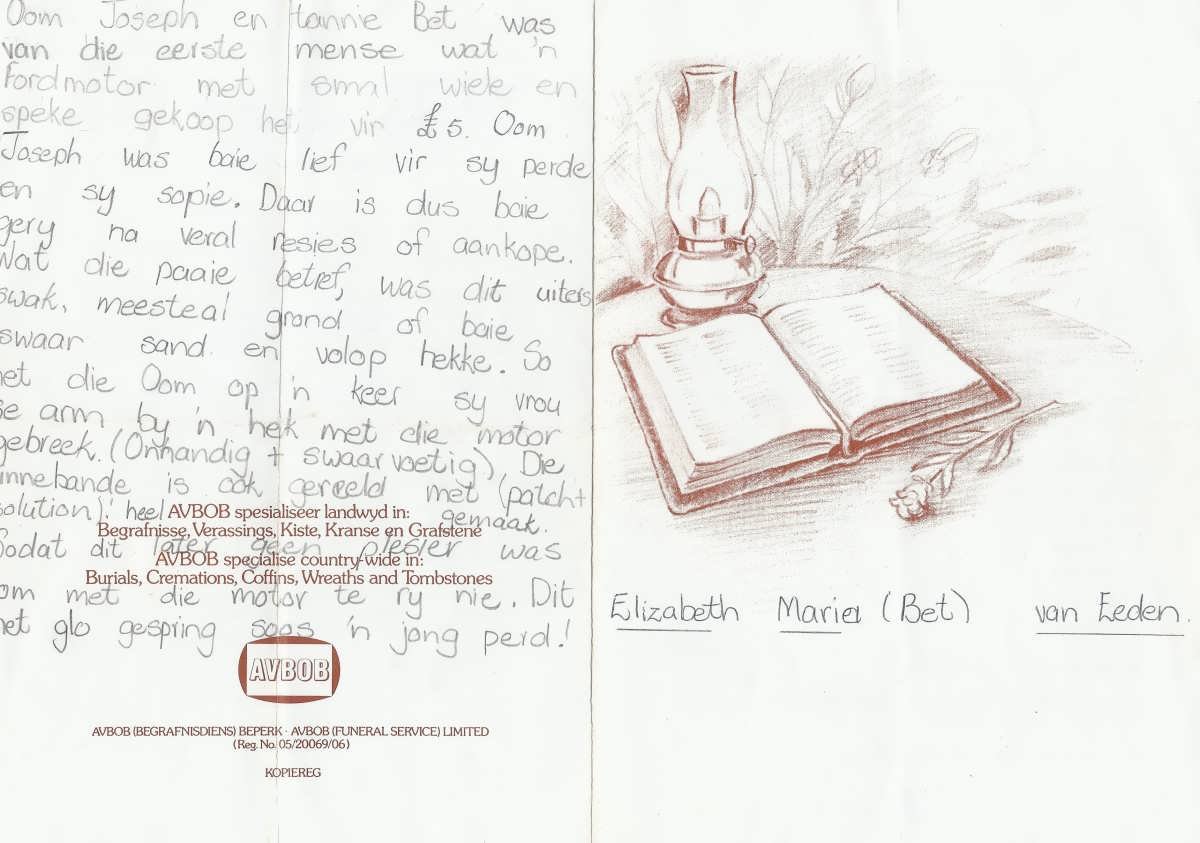 Oom Joseph en tannie Bet was
van die eerste mense wat 'n
Fordmotor met smal wiele en
speke gekoop het, vir £5. Oom
Joseph was baie lief vir sy perde
en sy sopie. Daar is dus baie
gery na veral resies of aankope.
Wat die paaie betref, was dit uiters
swak, meesteal grond of baie
swaar sand en volop hekke. So
het die Oom op 'n keer sy vrou
se arm by 'n hek met die motor
gebreek. (Onhandig + swaarvoetig), Die
innebande is ook gereeld met (patch+
solution). heel gemaak.
Sodat dit later geen plesier was
om met die motor te ry nie. Dit
het glo gespring soos 'n jong perd!
AVBOB spesialiseer landwyd in:
Begrafnisse, Verassings, Kiste, Kranse en Grafstene
AVBOB specialise country-wide in:
Burials, Cremations, Coffins, Wreaths and Tombstones
AVBOB
AVBOB (BEGRAFNISDIENS) BEPERK · AVBOB (FUNERAL SERVICE) LIMITED
(Reg. No. 05/20069/06)
KOPIEREG
Elizabeth Maria (Bet) van Eeden.